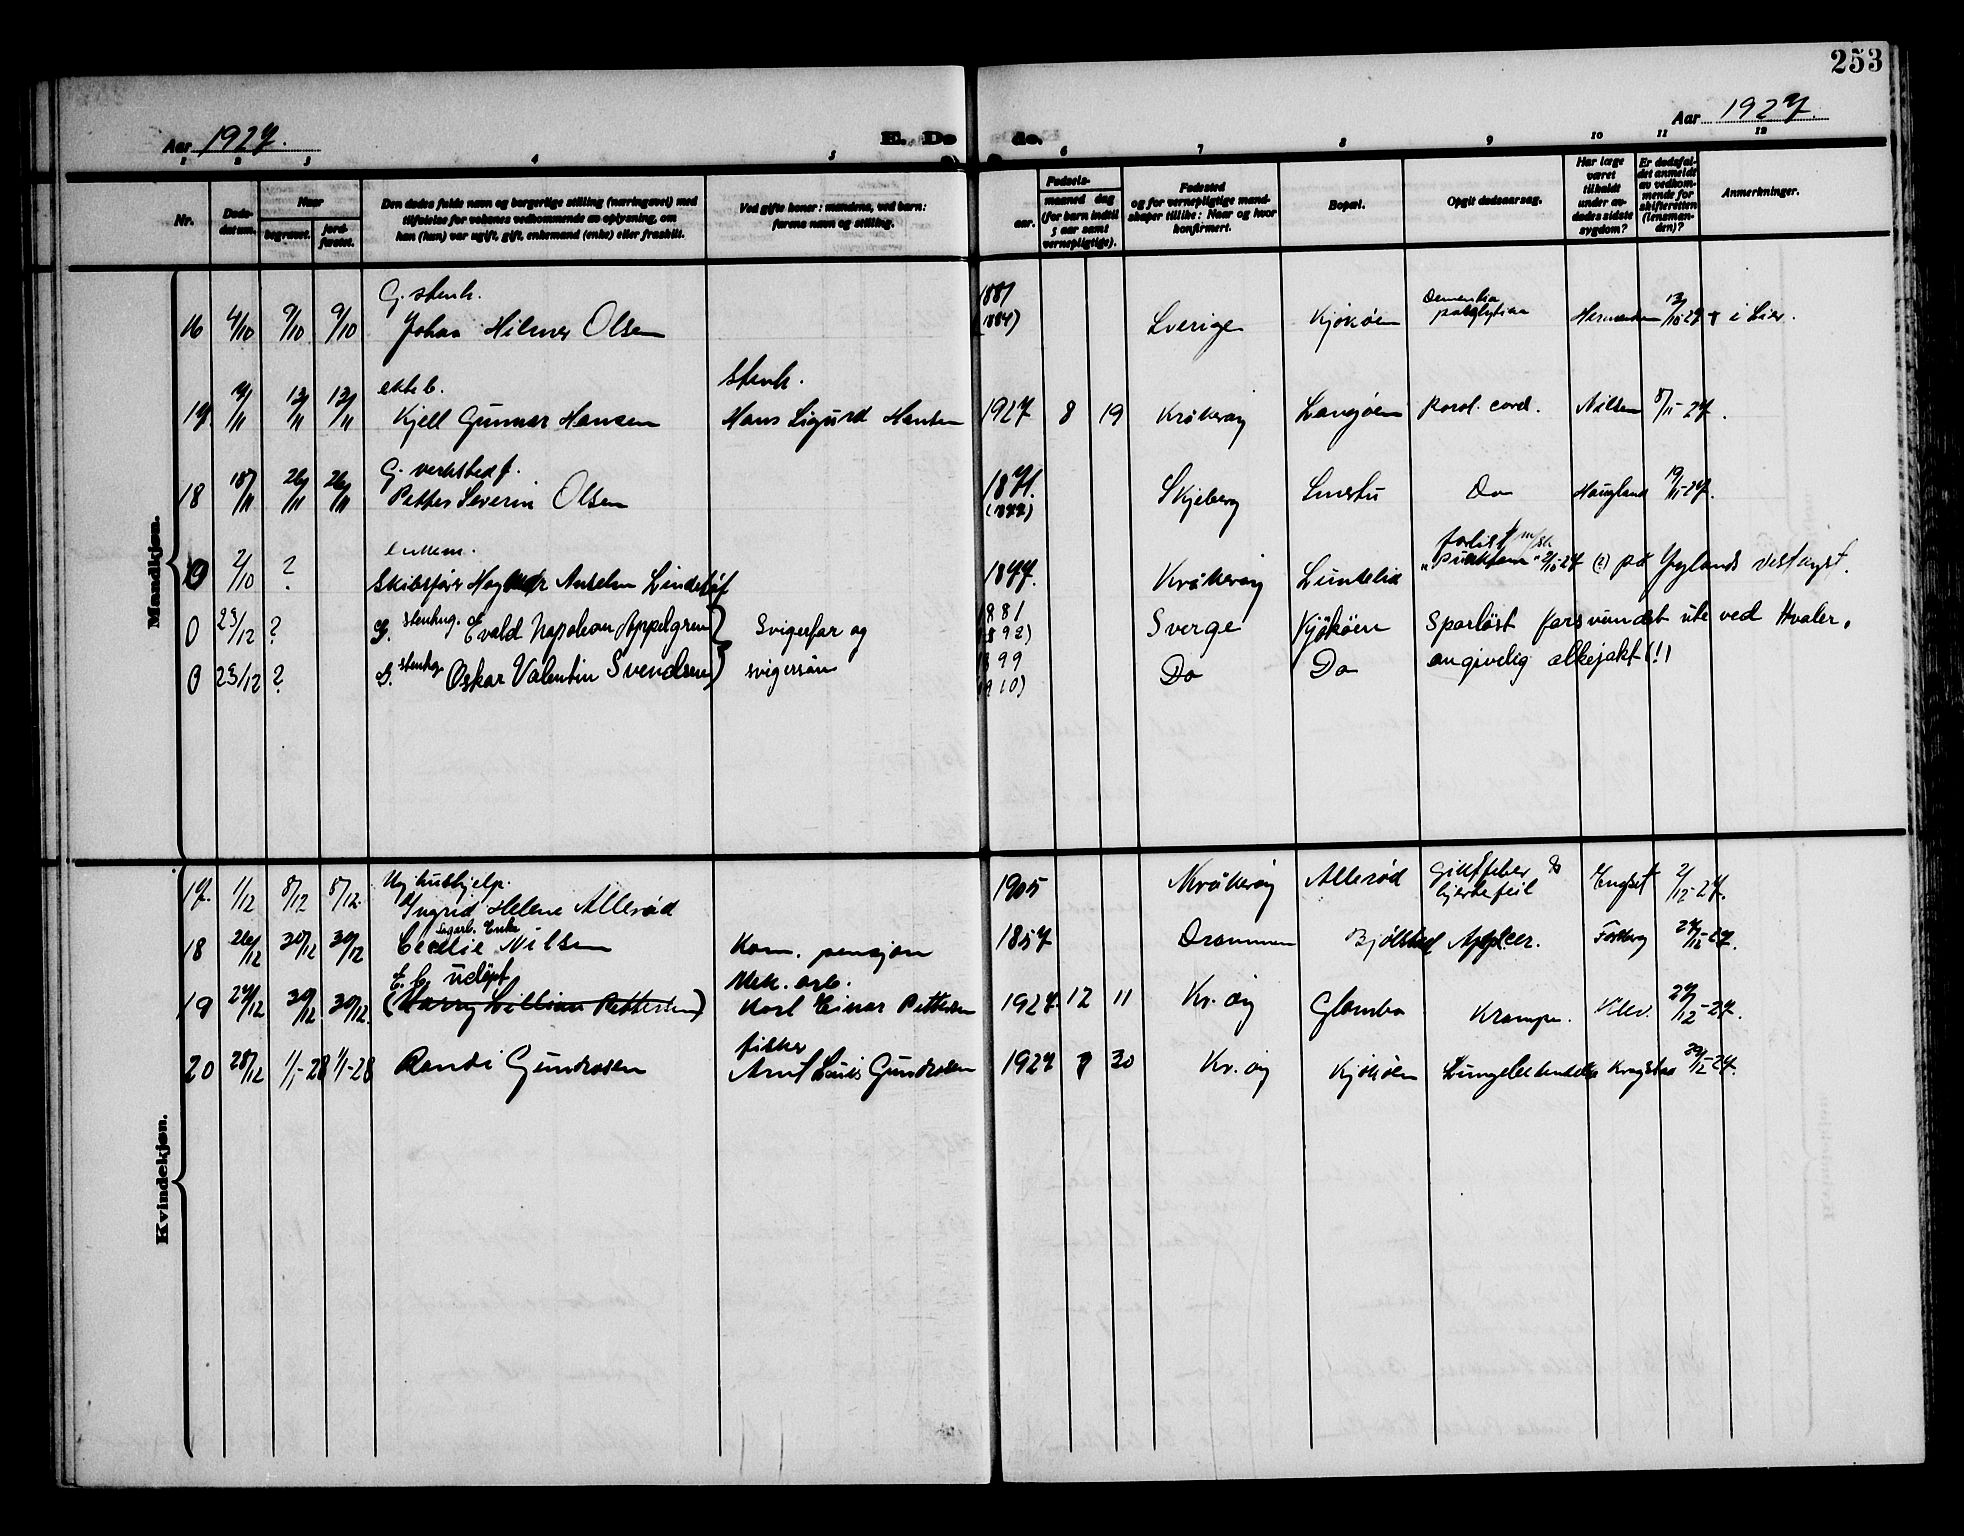 253
Aar 1927.
E. Døde.
Aar 1927.
1 2 3 4 5 6 7 8 9 10 11 12
Nr.
Døds-datum.
Naar
begravet.
jord-fæstet.
Den dødes fulde navn og borgerlige stilling (næringsvei) med
tilføielse for voksnes vedkommende av oplysning, om
han (hun) var ugift, gift, enkemand (enke) eller fraskilt.
Ved gifte koner: mandens, ved barn:
farens navn og stilling.
Fødsels-
aar.
maaned dag
(for barn indtil
5 aar samt
vernepligtige).
Fødested
og for vernepligtige mand-
skaper tillike: Naar og hvor
konfirmert.
Bopæl.
Opgit dødsaarsag.
Har læge
været
tilkaldt
under av-
dødes sidste
sygdom?
Er dødsfal-
det anmeldt
av vedkom-
mende for
skifteretten
(lensman-
den)?
Anmerkninger.
Mandkjøn.
G. stenh.
16 4/10 9/10 9/10 Johan Hilmer Olsen 1881 (1884) Sverige Kjøkøen Dementia paralytica 13/10-27 † i Lier.
ekte b. Stenh.
17. 13/11 13/11 Kjell Gunnar Hansen Hans Sigurd Hansen 1927 8 19 Kråkerøy Langøen Paral. cord. Nilsen 8/11-27.
G. verkstedf.
18 18/11 26/11 26/11 Petter Severin Olsen 1871. (1877) Skjeberg Smertu Do Haugland 19/11-27.
enkem.
0 2/10 ? Skibsfører Anselm 1847. Kråkerøy Lunkelia forlist m/sk "2/10-27 (?) på Jyllands vestkyst.
0 23/12 ? G. stenhug. Evald Napoleon Appelgren } Svigerfar og 1881 (1892) Sverge Kjøkøen Sporløst forsvundet ute ved Hvaler,
0 23/12 ? G. stenhug Oskar Valentin Svendsen } svigersøn 1899 Do Do angivelig alkejakt (!)
Kvindekjøn.
Ug. hushjelp.
17. 1/12 8/12 8/12. Ingrid Helene Allerød 1905 Kråkerøy Allerød Giktfeber & hjertefeil Engset 2/12-27.
Sagarb. Enke
18 26/12 30/12 30/12 Cecilie Nilsen Kom. pensjon 1857 Drammen Bjølstad 27/12-27.
E. b. udøpt Mek. arb.
19 27/12 30/12 30/12. (Harry Willian Pettersen) Karl Einar Pettersen 1927. 12 11 Kr. øy Glombo Krampe. 27/12-27.
fisker
20 28/12 1/1-28 1/1-28 Randi Gundersen Arnt Louis Gundersen 1927 30 Kr. øy Kjøkøen Lungebetendelse Kragstad 29/12-27.